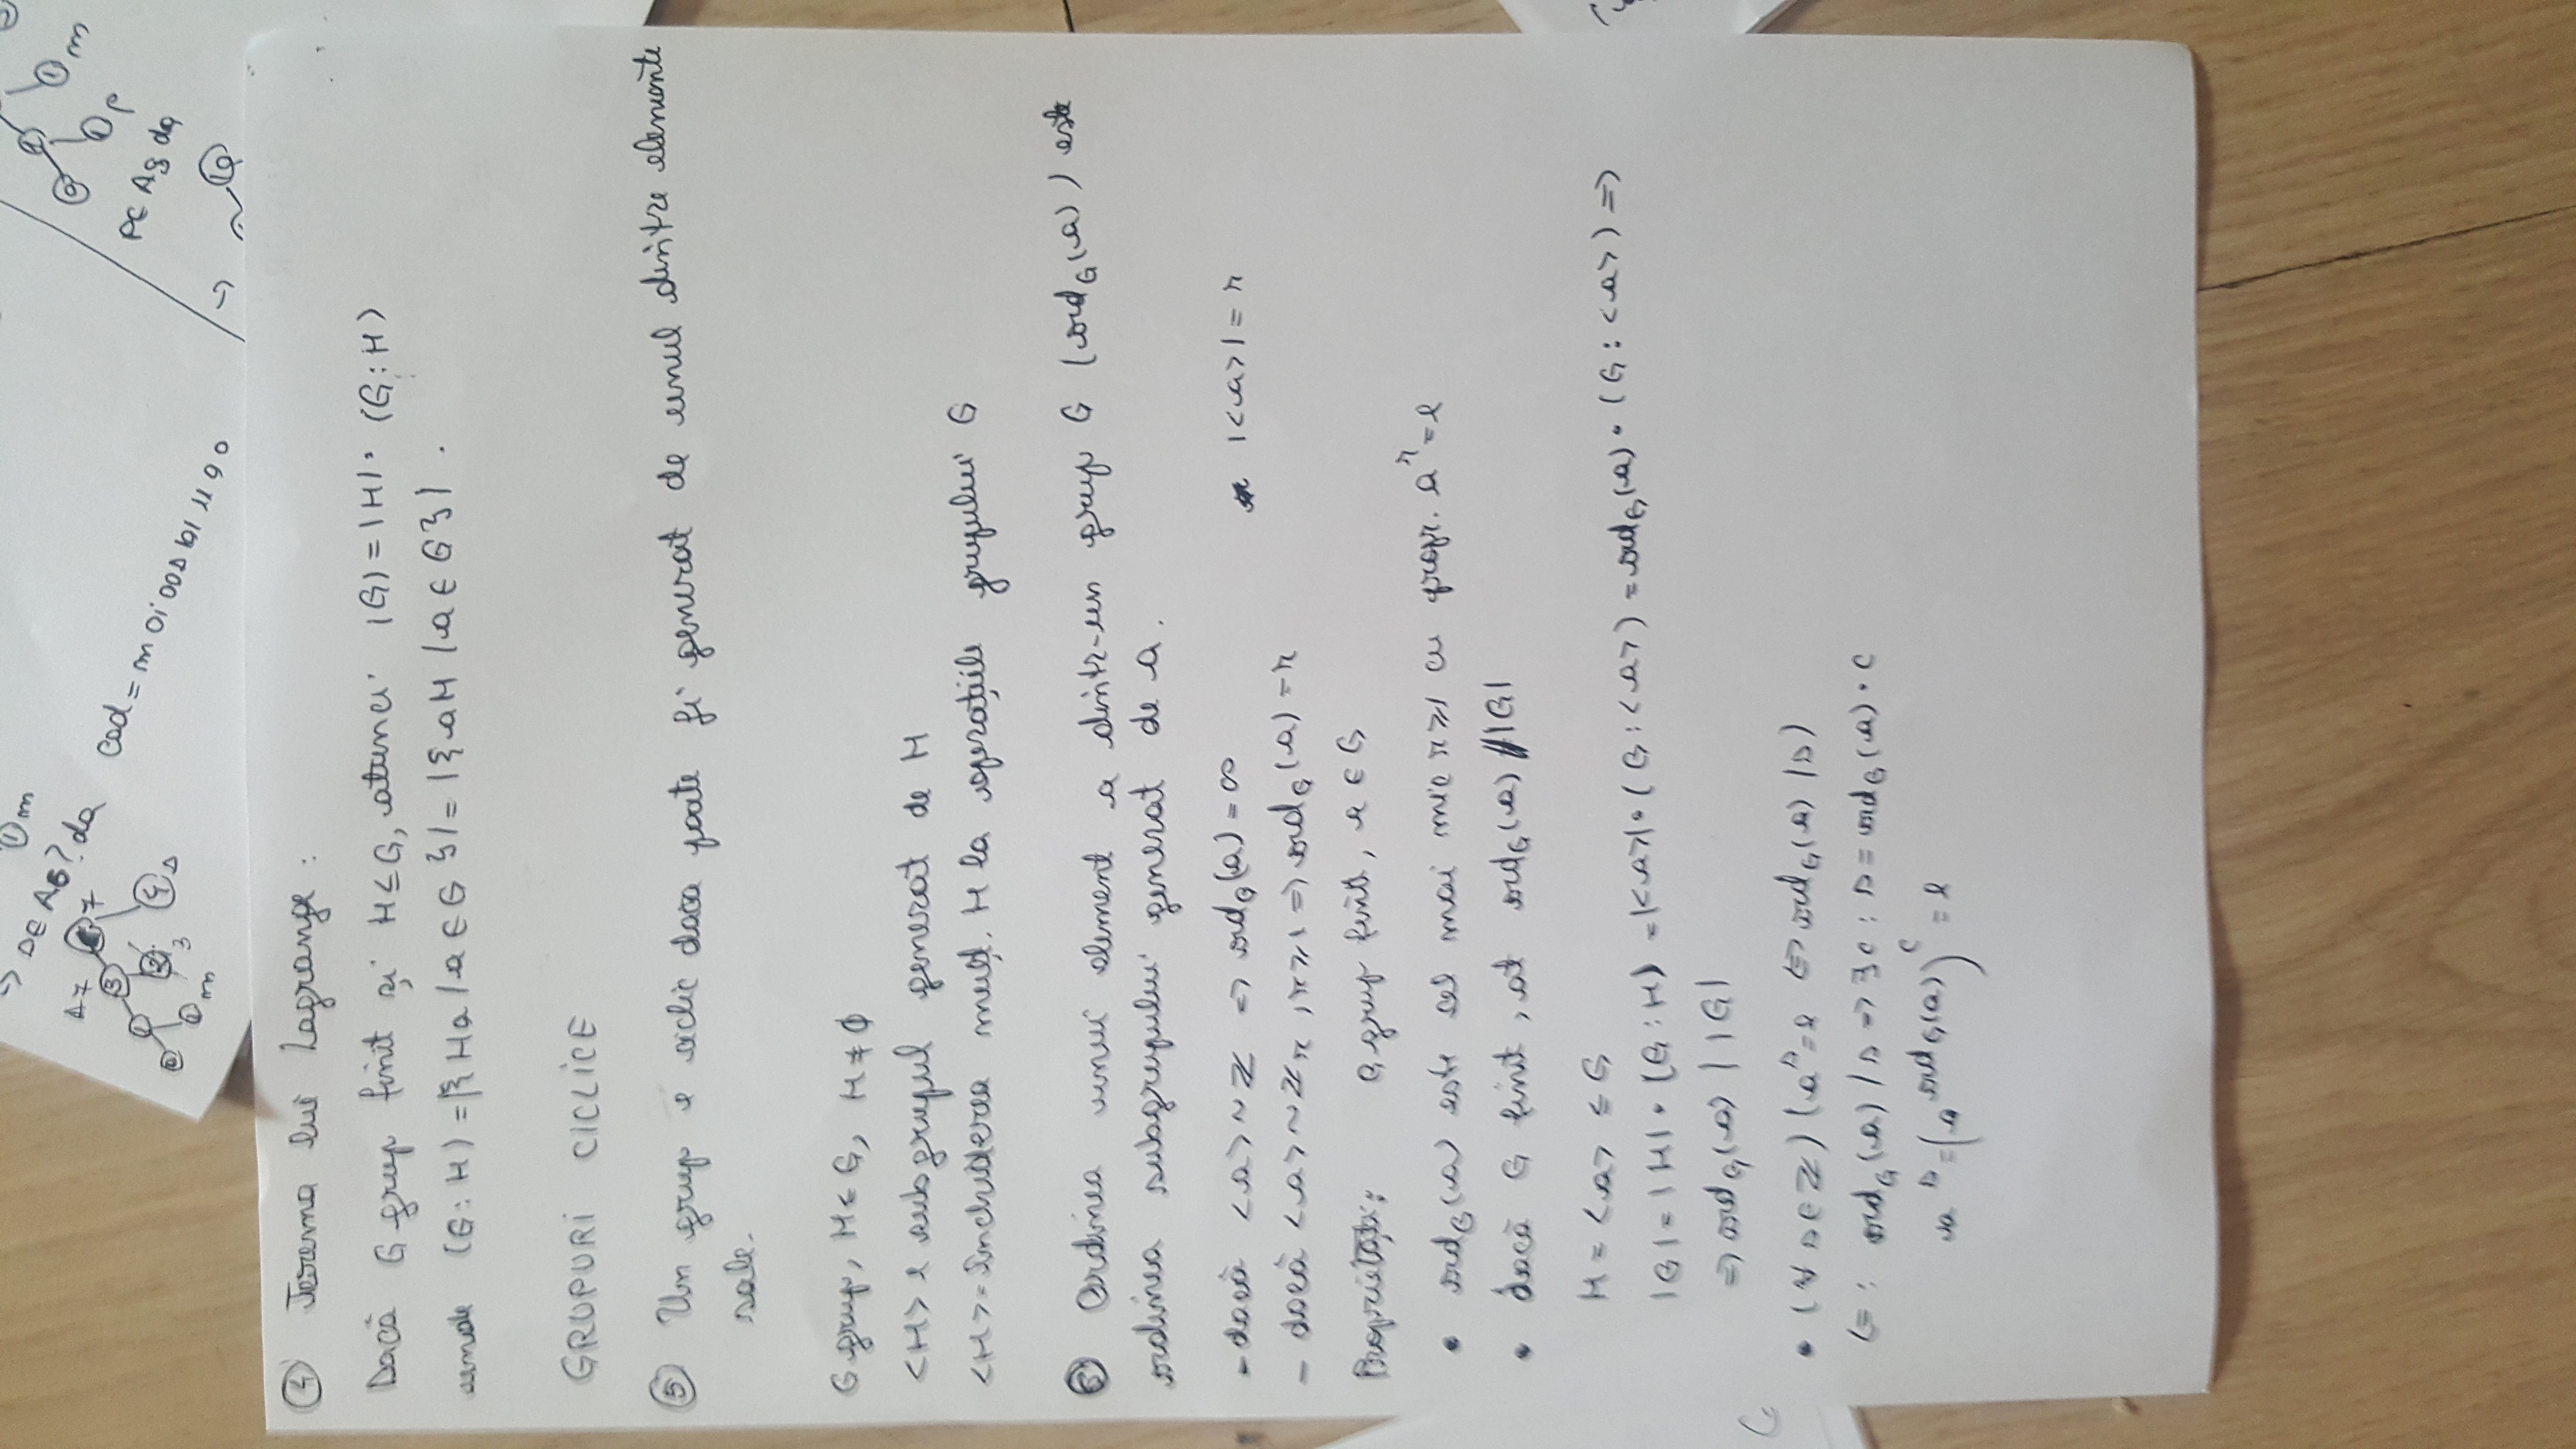 → DE A6? da
Δ7
7
3
1
0
m
3
4
Δ
cod = m 0i 00Δ 101 11 g 0
1 m
0
1 p
PE A9 da
→ 10
④ Teorema lui Lagrange :
Dacă G grup finit și H ≤ G, atunci |G| = |H| · (G : H)
unde (G : H) = |{Ha / a ∈ G}| = |{aH / a ∈ G}| .
GRUPURI CICLICE
⑤ Un grup e ciclic daca poate fi generat de unul dintre elemente
sale.
G grup, H ≤ G, H ≠ ∅
<H> e subgrupul generat de H
<H> = închiderea mulț. H la operațiile grupului G
⑥ Ordinea unui element a dintr-un grup G (ord_G(a)) este
ordinea subgrupului generat de a.
- dacă <a> ~ ℤ => ord_G(a) = ∞ |<a>| = r
- dacă <a> ~ ℤ_r , r ≥ 1 => ord_G(a) = r
Proprietăți: G grup finit, a ∈ G
• ord_G(a) este cel mai mic r ≥ 1 cu propr. a^r = e
• dacă G finit, at ord_G(a) | |G|
H = <a> ≤ G
|G| = |H| · (G : H) = |<a>| · (G : <a>) = ord_G(a) · (G : <a>) =>
=> ord_G(a) | |G|
• (∀ s ∈ ℤ) (a^s = e <=> ord_G(a) | s)
<= : ord_G(a) / s => ∃ c : s = ord_G(a) · c
a^s = (a^ord_G(a))^c = e